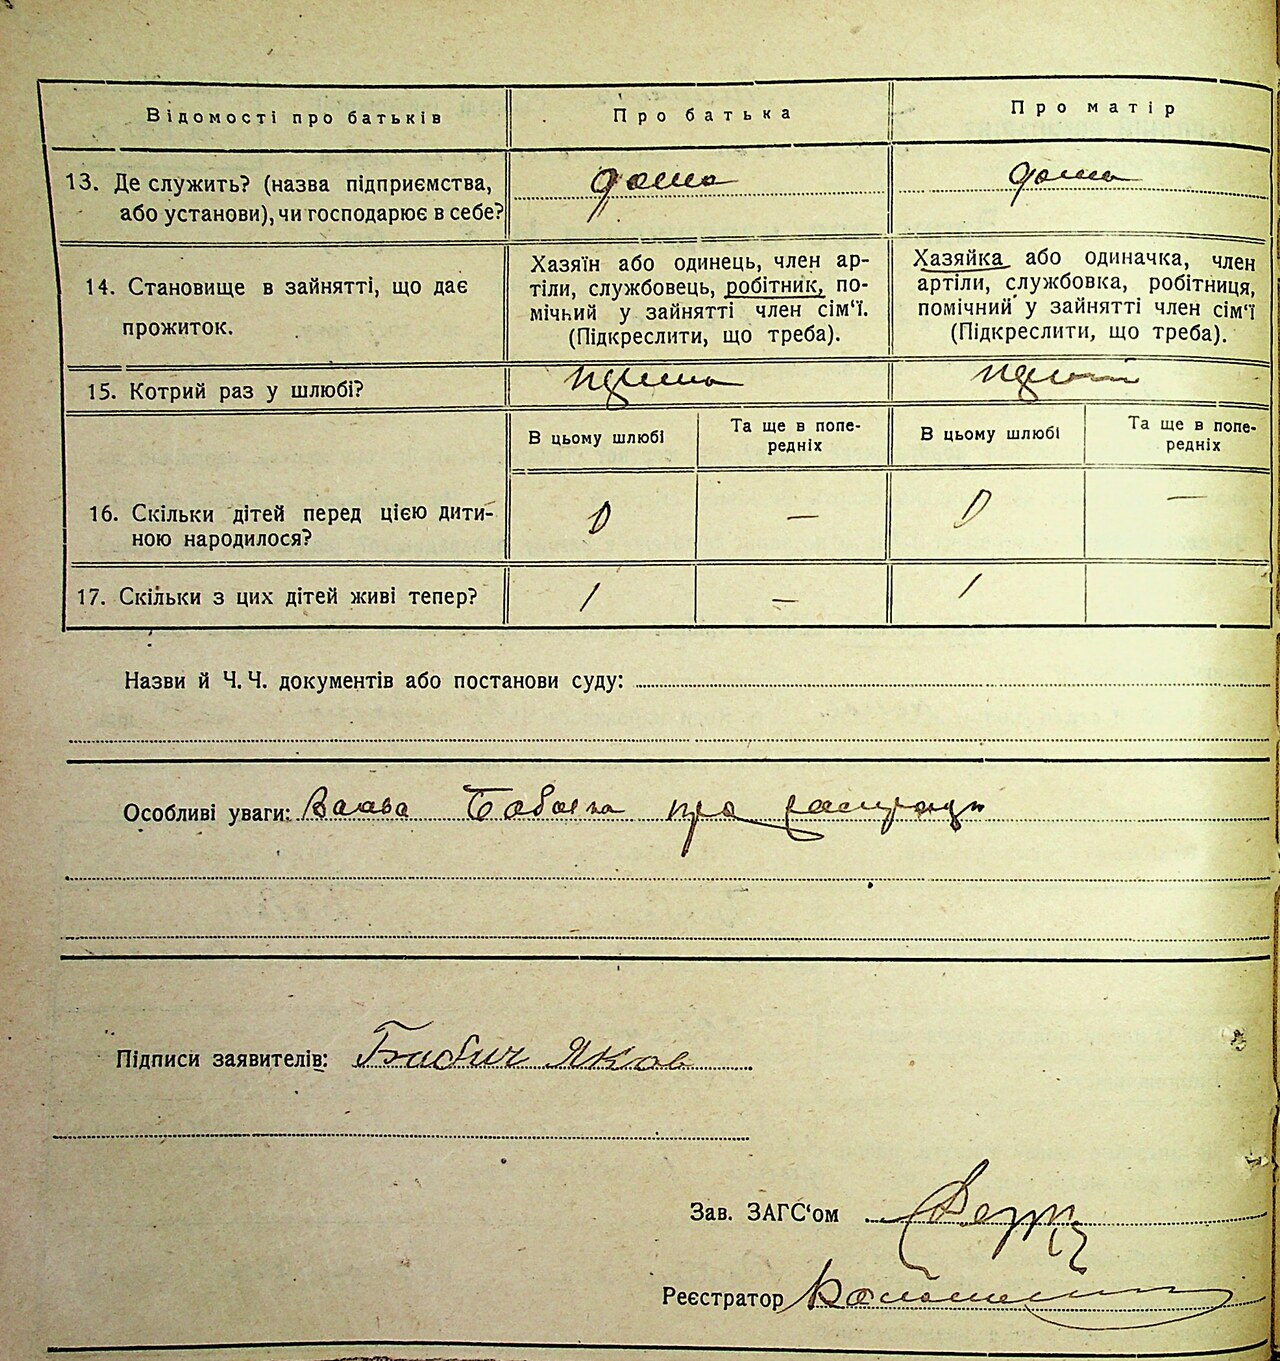 Відомості про батьків
Про батька
Про матір
13. Де служить? (назва підприємства,
або установи), чи господарює в себе?
дома
дома
14. Становище в зайнятті, що дає
прожиток.
Хазяїн або одинець, член ар-
тіли, службовець, робітник, по-
мічний у зайнятті член сім'ї.
(Підкреслити, що треба).
Хазяйка або одиначка, член
артіли, службовка, робітниця,
помічний у зайнятті член сім'ї
(Підкреслити, що треба).
15. Котрий раз у шлюбі?
В цьому шлюбі
Та ще в попе-
редніх
В цьому шлюбі
Та ще в попе-
редніх
16. Скільки дітей перед цією дити-
ною народилося?
—
—
17. Скільки з цих дітей живі тепер?
1
—
1
Назви й Ч.Ч. документів або постанови суду:
Особливі уваги: про
Підписи заявителів: Бабич Яков
Зав. ЗАГС'ом
Реєстратор